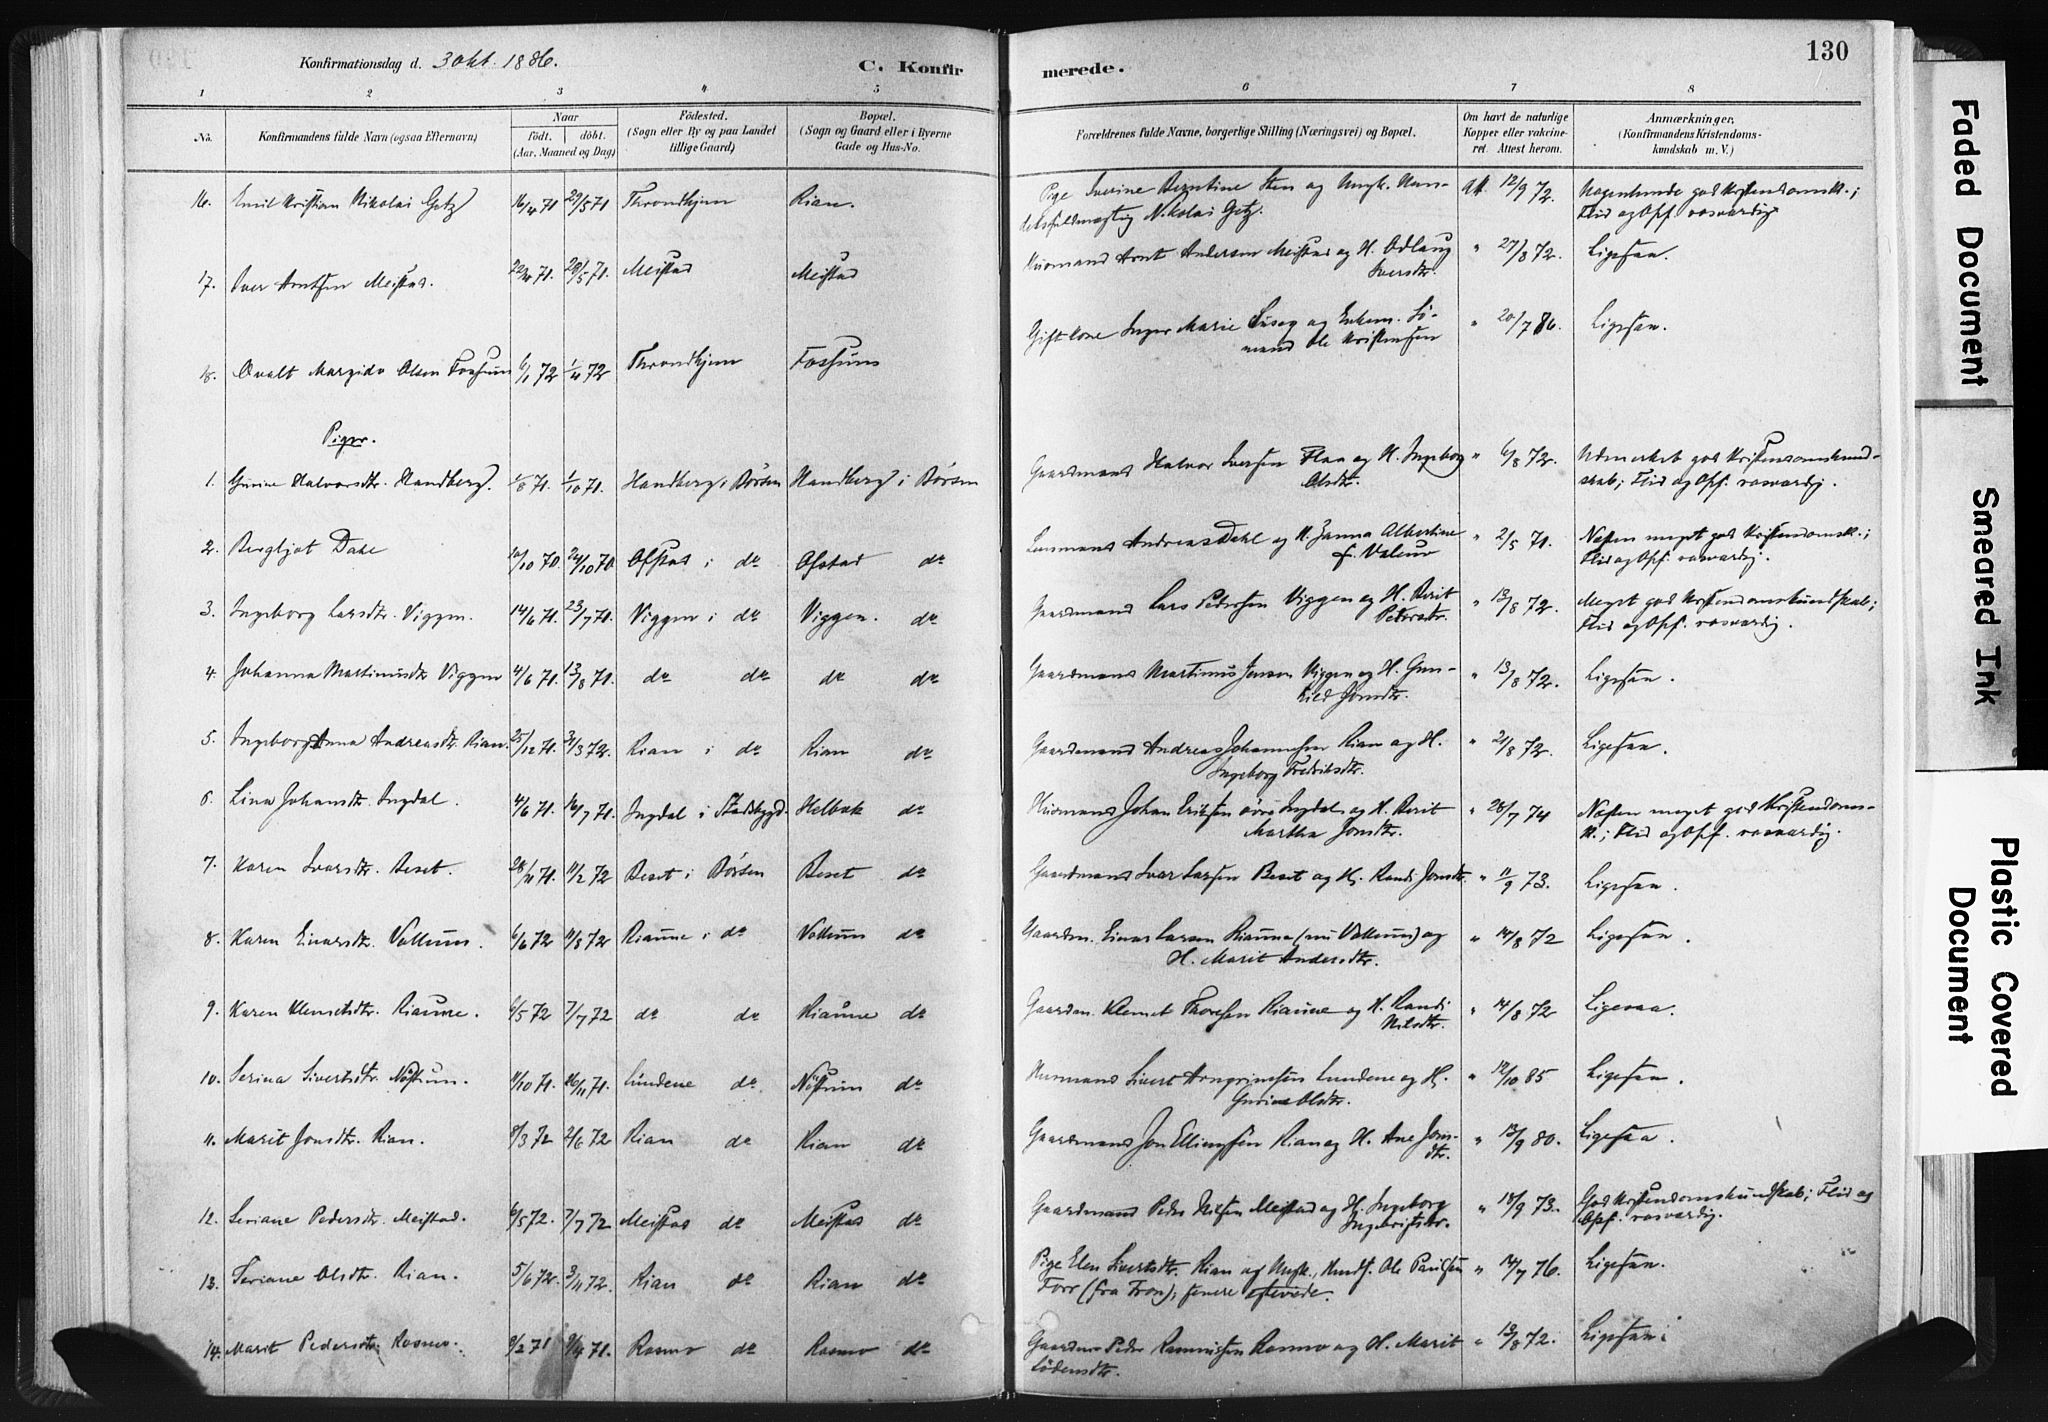 Konfirmationsdag d. 3 Okt. 1886.
C. Konfir
merede.
130
1 2 3 4 5 6 7 8
No.
Konfirmandens fulde Navn (ogsaa Efternavn)
Naar
födt. döbt.
(Aar, Maaned og Dag)
Födested.
(Sogn eller By og paa Landet
tillige Gaard)
Bopæl.
(Sogn og Gaard eller i Byerne
Gade og Hus-No.
Forældrenes fulde Navne, borgerlige Stilling (Næringsvei) og Bopæl.
Om havt de naturlige
Kopper eller vakcine-
ret. Attest herom.
Anmærkninger,
(Konfirmandens Kristendoms-
kundskab m. V.)
16. Emil Kristian Nikolai Getz 16/4 71 29/5 71 Throndhjem Rian. Pige Serine Berntine Sten og Ungk. Han- Att. 12/9 72. Nogenlunde god Kristendomsk.;
delsfuldmægtig Nikolai Getz. Flid og Opf. rosværdig
17. Iver Arntsen Meistad. 22/4 71. 29/5 71. Meistad Meistad Husmand Arnt Andersen Meistad og H. Odlaug " 27/8 72. Ligesaa.
Iversdtr.
18. Ovalt Margido Olsen Fossum 6/1 72 1/4 72 Throndhjem Fossum Gift Kone Inger Marie og Enkem. Sö- " 20/7 86. Ligesaa.
mand Ole Kristensen
Piger.
1. Gurine Halvorsdtr. Handberg. 1/8 71. 1/10 71. Handberg i Börsen Handberg i Börsen Gaardmand Halvor Iversen Flaa og H. Ingeborg " 6/8 72. Udmerket god Kristendomskund-
Olsdtr. skab; Flid og Opf. rosværdig.
2. Bergljot Dahl 10/10 70. 24/10 70. Ofstad i do Ofstad do Lensmand Andreas Dahl og H. Janna Albertine " 2/5 71. Næsten meget god Kristendomsk.;
f. Valeur Flid og Opf. rosværdig.
3. Ingeborg Larsdtr. Viggen. 14/6 71. 23/7 71. Viggen i do Viggen. do Gaardmand Lars Pedersen Viggen og H. Berit " 13/8 72. Meget god Kristendomskundskab;
Pedersdtr. Flid og Opf. rosværdig.
4. Johanna Martinusdtr Viggen 4/6 71. 13/8 71. do do do do Gaardmand Martinus Jensen Viggen og H. Gun- " 13/8 72. Ligesaa.
hild Jonsdtr.
5. Ingeborg Anna Andreasdtr. Rian. 25/12 71. 31/3 72. Rian i do Rian do Gaardmand Andreas Johannesen Rian og H. " 21/8 72. Ligesaa.
Ingeborg Fredriksdtr.
6. Lina Johansdtr. Ingdal. 4/6 71. 16/7 71. Ingdal i Stadsbygd. Helbæk do Husmand Johan Eriksen övre Ingdal og H. Berit " 28/7 74 Næsten meget god Kristendoms-
Martha Jonsdtr. k.; Flid og Opf. rosværdig.
7. Karen Ivarsdtr. Beset. 28/11 71. 11/2 72 Beset i Börsen Beset do Gaardmand Ivar Larsen Beset og H. Randi Jonsdtr. " 11/9 73. Ligesaa.
8. Karen Einarsdtr. Vollum. 6/6 72 11/8 72 Riaune i do Vollum do Gaardm. Einar Larsen Riaune (nu Vollum) og " 14/8 72 Ligesaa.
H. Marit Andersdtr.
9. Karen Klemetsdtr. Riaune. 6/5 72 7/7 72 do do Riaune do Gaardm. Klemet Thoresen Riaune og H. Randi " 14/8 72 Ligesaa.
Nilsdtr.
10. Serina Sivertsdtr. Nöstum. 11/10 71. 26/11 71. Lundene do Nöstum do Husmand Sivert Arngrimsen Lundene og H. " 12/10 85 Ligesaa.
Gurine Olsdtr.
11. Marit Jonsdtr. Rian. 8/3 72 2/6 72 Rian do Rian do Gaardmand Jon Ellingsen Rian og H. Ane Jons- " 13/9 80. Ligesaa.
dtr.
12. Seriane Pedersdtr. Meistad. 6/5 72. 7/7 72 Meistad do Meistad do Gaardmand Peder Nilsen Meistad og H. Ingeborg " 18/9 73. God Kristendomskundskab; Flid og
Ingebrigtsdtr. Opf. rosværdig.
13. Seriane Olsdtr. Rian. 5/6 72. 3/11 72. Rian do Rian do Pige Elen Sivertsdtr. Rian og Ungk., Ole Paulsen " 14/7 76. Ligesaa.
Forr (fra Fron); senere
14. Marit Pedersdtr. Rosmo. 9/2 71 9/4 71. Rosmo do Rosmo do Gaardm. Peder Rasmussen Rosmo og H. Marit " 13/8 72. Ligesaa.
Faded Document
Smeared Ink
Plastic Covered
Document